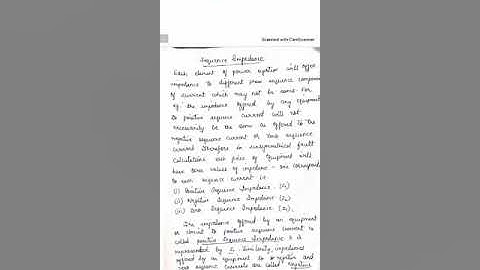 Scanned with CamScanner
Sequence Impedance
Each element of power system will offer
impedance to different phase sequence component
of current which may not be same. For
eg. the impedance offered by any equipment
to positive sequence current will not
necessarily be the same as offered to the
negative sequence current or zero sequence
current. Therefore in unsymmetrical fault
calculations each piece of equipment will
have three values of impedance - one corresponding
to each sequence current i.e.
(i) Positive Sequence Impedance (Z1)
(ii) Negative Sequence Impedance (Z2)
(iii) Zero Sequence Impedance (Z0).
The impedance offered by an equipment
or circuit to positive sequence current is
called positive sequence impedance & is
represented by Z1. Similarly, impedances
offered by an equipment to
zero sequence currents are called negative